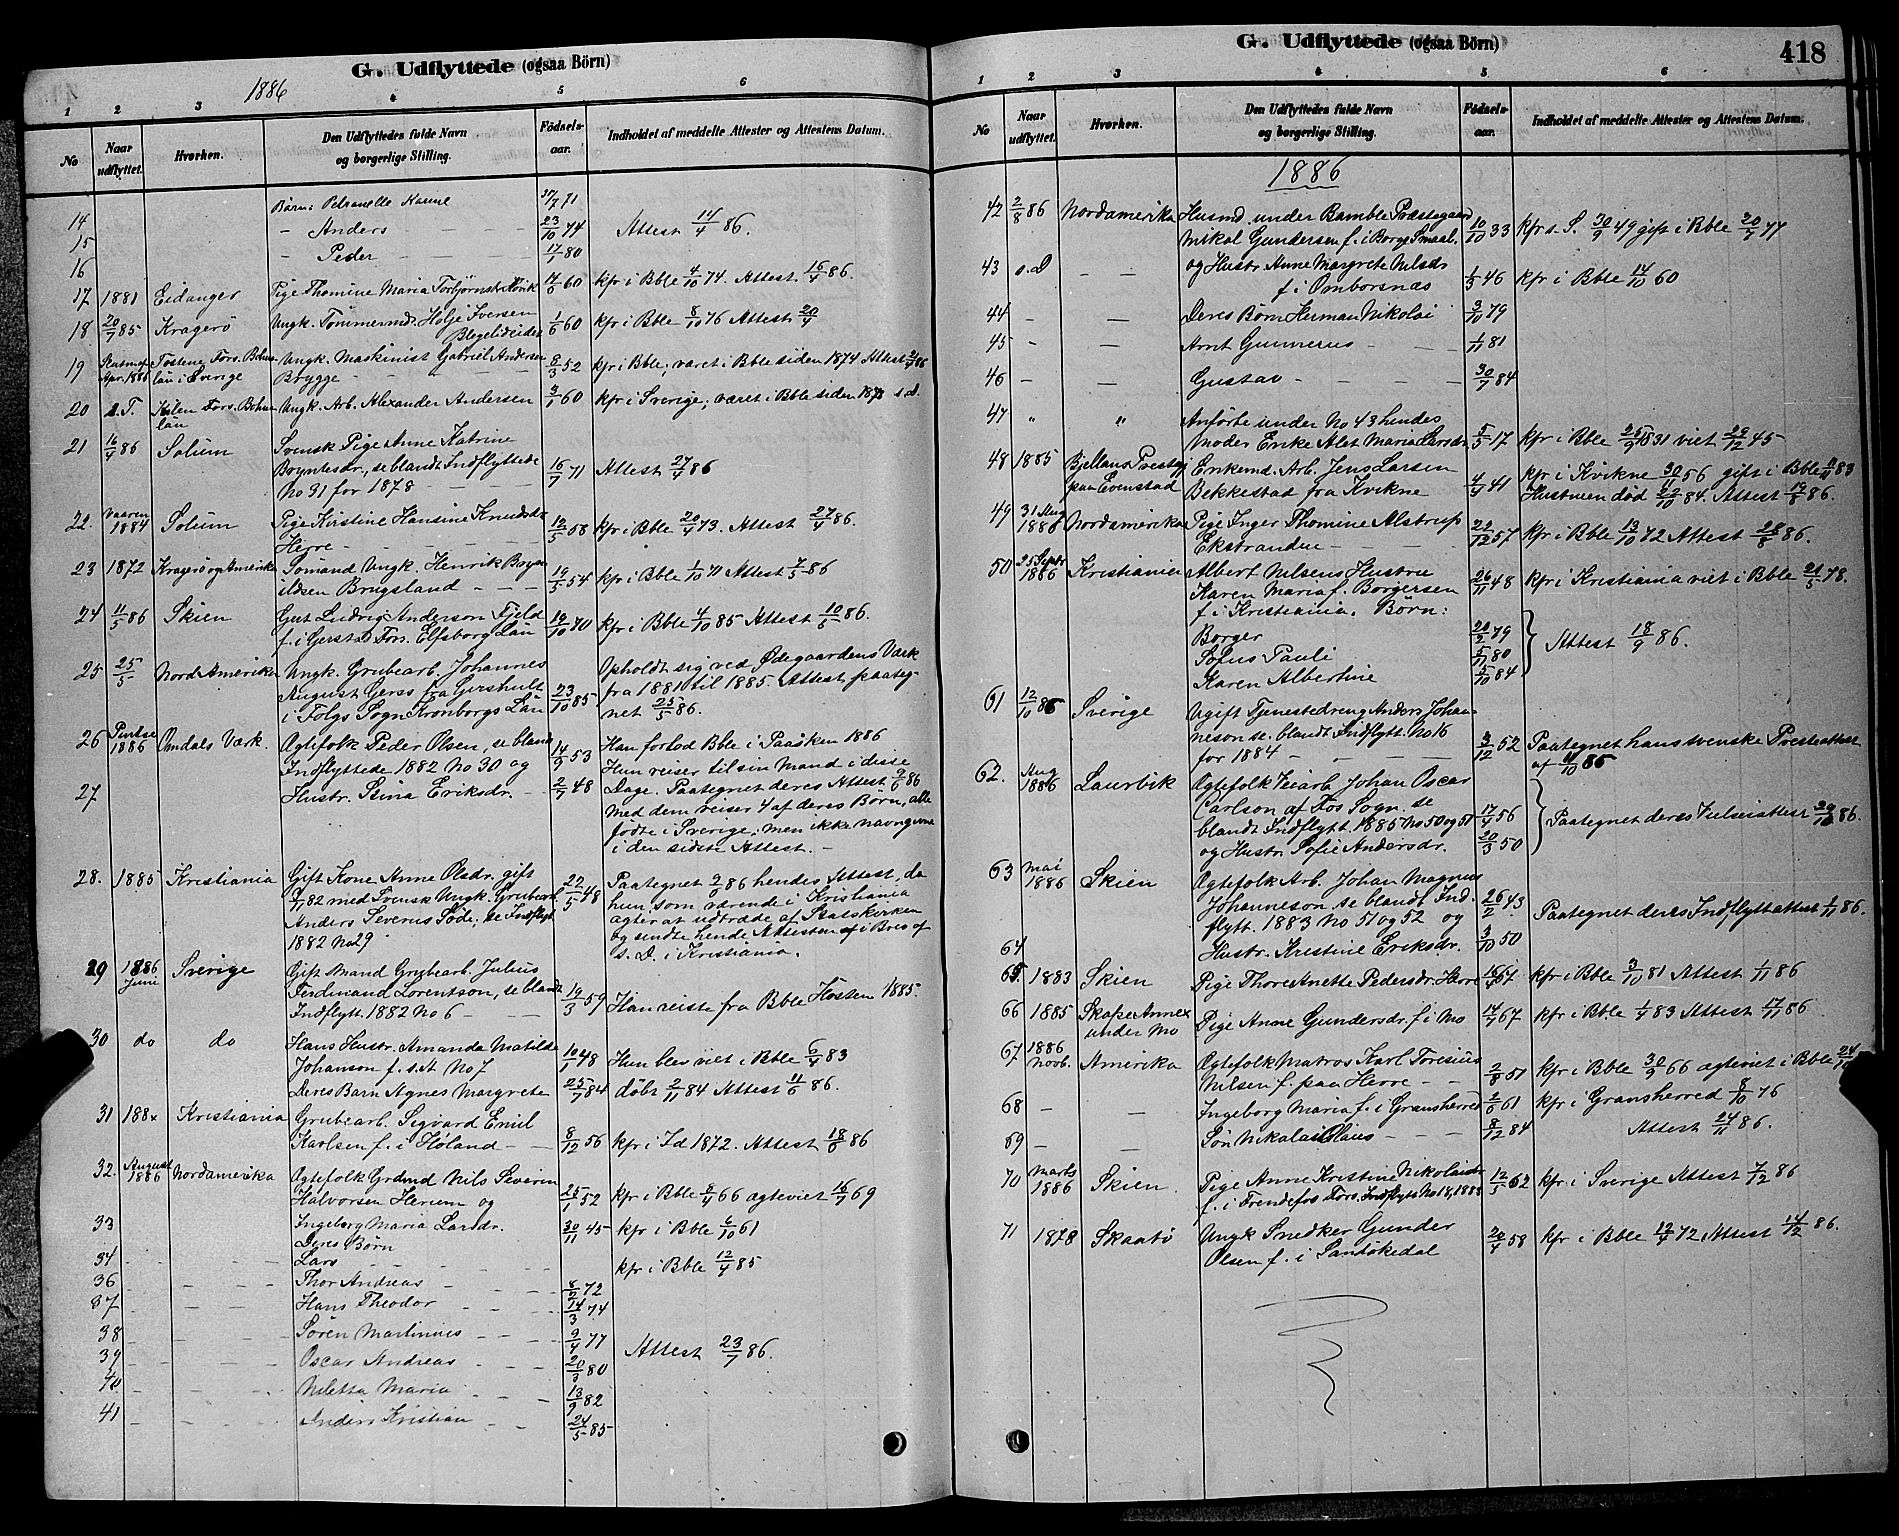 G. Udflyttede (ogsaa Börn)
1886
1 2 3 4 5 6
No
Naar udflyttet.
Hvorhen.
Den Udflyttedes fulde Navn og borgerlige Stilling.
Födsels-aar.
Indholdet af meddelte Attester og Attestens Datum.
14 Börn: Petronelle Karine 71
15 - Anders - - - 23/10 74 Attest 14/4 86.
16 - Peder - - - 17/1 80
17 1881 Eidanger Pige Thomine Maria 60 kfr i Bble 4/10 74. Attest 16/4 86.
18 20/7 85 Kragerö Ungk. Tömmermd. Hölje Iversen 1/6 60 kfr i Bble 8/10 76 Attest 20/4
19 Apr. 1886 Fors. Bohus- Ungk. Maskinist Gabriel Andersen
län i Sverige Brygge - - - 8/3 52 kfr i Bble; været i Bble siden 1874 Attest 86
20 Fors. Bohus län Ungk. Arb. Alexander Andersen 3/1 60 kfr i Sverige; været i Bble siden 1878 s.d.
21 16/4 86 Solum Svensk Pige Anne Katrine
se blandt Indflyttede
No 91 for 1878 - - 16/7 71 Attest 27/4 86
22 Vaaren 1884 Solum Pige Kirstine Hansine Knudsdr.
Herre - - - 12/5 58 kfr i Bble 20/4 73. Attest 27/4 86.
23 1872 Kragerö og Amerika Sömand Ungk. Henrik
Brugsland - - 19/5 54 kfr i Bble 1/10 71 Attest 7/5 86
24 11/5 86 Skien Gut Ludvig Anderson Fjeld
f. i Fors. Elfsborg Län 19/10 70 kfr i Bble 4/10 85 Attest 10/6 86.
25 25/5 Nord Amerika Ungk. Grubearb. Johannes
August fra
i Sogn Kronborgs Län 23/10 85 Opholdt sig ved Ödegaardens Værk
fra 1881 til 1885. Attest paateg-
net 25/5 86.
26 Pintse 1886 Omdals Værk. Ægtefolk Peder Olsen, se bland
Indflyttede 1882 No 30 og 14/9 53 Han forlod Bble i Paasken 1886
27 Hustr. Stina Eriksdr. - 2/7 48 Hun reiser til sin Mand i disse
Dage. Paategnet deres Attest 2/6 86
Med dem reiser 4 af deres Börn, alle
födte i Sverige; men ikke navngivne
i den sidste Attest. -
28. 1885 Kristiania Gift Kone Anne Olsdr. gift
82 med Svensk Ungk. Grubearb.
Anders Severus Söde, se Indflyt
1882 No 29 22/5 48 Paategnet 86 hendes Attest, da
hun som værende i Kristiania
agter at udtræde af Statskirken
og sendte hende Attesten i Brev af
s. D. i Kristiania.
29 1886 Juni Sverige Gift Mand Grubearb. Julius
Ferdinand Lorentson, se bland
Indflytt. 1882 No 6 - 19/3 59 Han reiste fra Bble Hösten 1885.
30 do do Hans Hustr. Amanda Matilde
Johanson f. s. A No 7 10/1 48 Hun blev viet i Bble 6/4 83
Deres Barn Agnes Margrete 25/7 84 döbt 2/11 84 Attest 11/6 86.
31 188x Kristiania Grubearb. Sigvard Emil
Karlsen f. i Höland - 8/12 56 kfr i Id 1872. Attest 18/6 86
32. August 1886 Nordamerika Ægtefolk Grdmd Nils Severin
Halvorsen Herum og 25/1 52 kfr i Bble 66 ægteviet 69
33 Ingeborg Maria Larsdr. 30/11 45 kfr i Bble 6/10 61
Deres Börn
34 Lars - - - kfr i Bble 12/4 85
36 Thor Andreas - - 72
37 Hans Theodor - - 14/3 74
38 Sören Martinius - - 9/4 77
39 Oscar Andreas - - 20/3 80 Attest 23/7 86.
40 Niletta Maria - - 13/9 82
41 Anders Kristian - - 24/5 85
G. Udflyttede (ogsaa Börn)
418
1 2 3 4 5 6
No
Naar udflyttet.
Hvorhen.
Den Udflyttedes fulde Navn og borgerlige Stilling.
Födsels-aar.
Indholdet af meddelte Attester og Attestens Datum.
1886
42 2/8 86 Nordamerika Husmd. under Bamble Præstegaard
Nikol Gundersen f. i Borge Smaal. 10/10 33 kfr s. S. 30/9 49 gift i Bble 77
43 s.D - - og Hustr. Anne Margrete Nilsdr
f. i Omborsnæs 1/5 46 kfr i Bble 14/10 60
44 - - Deres Börn Herman Nikolai 3/10 79
45 - - Arnt Gunnerus - - 1/11 81
46 - - Gustav - - - 30/7 84
47 " " Anförte under No 43 hendes
Moder Enke Alet Maria Larsdr. 5/5 17 kfr i Bble 25/9 1831 viet 29/12 45
48 1885 Præstegj. paa Evenstad Enkemd. Arb. Jens Larsen
Bekkestad fra Kvikne 4/4 41 kfr i Kvikne 56 gift i Bble 83
Hustruen död 22/10 84. Attest 19/8 86.
49 31 Aug 1886 Nordamerika Pige Inger Thomine Alstrup
Ekstranden - - - 22/12 57 kfr i Bble 13/10 72 Attest 28/8 86.
50 Septr 1886 Kristiania Albert Nilsens Hustru
Karen Maria f. Borgersen 26/11 48 kfr i Kristiania viet i Bble 21/5 78.
f. i Kristiania. Börn:
Borger 20/2 79
Sofus Pauli 5/11 80
Karen Albertine 5/10 84 Attest 18/9 86.
61 12/10 86 Sverige Ugift Tjenestedreng Anders Johan-
neson se blandt Indflytt. No 16
for 1884 - - - 3/12 52 Paategnet hans svenske Presteattest
af 11/10 86
62. Aug 1886 Laurvik Ægtefolk Veiarb. Johan Oscar
Carlson af Fos Sogn. se
blandt Indflytt. 1885 No 50 og 51 17/4 56
og Hustr. Sofie Andersdr. 20/3 50 Paategnet deres Vielseattest 86.
63 Mai 1886 Skien Ægtefolk Arb. Johan Magnus
Johanneson se blandt Ind-
flytt. 1883 No 51 og 52 og 26/2 43
64 Hustr. Kristine Eriksdr. 3/10 50 Paategnet deres Indflyttattest 1/11 86.
65. 1883 Skien Pige Thore Anette Pedersdr. Herre 67 kfr i Bble 3/10 81 Attest 1/11 86
66 1885 Skafse Annex under Mo Pige Anne Gundersdr. f. i Mo 67 kfr i Bble 83 Attest 17/11 86
67 1886 Novb. Amerika Ægtefolk Matros Karl Toresius
Nilsen f. paa Herre - - 2/8 51 kfr i Bble 30/9 66 ægteviet i Bble
68 - - Ingeborg Maria f. i Gransherred 2/6 61 kfr i Gransherred 8/10 76
69 - Sön Nikolai Olaus - - 8/12 84 Attest 24/11 86.
70 Marts 1886 Skien Pige Anne Kristine Nikolaisdr
f. i Fors. Indflytt No 18, 1883 12/5 62 kfr i Sverige Attest 7/12 86
71 1878 Skaatö Ungk Snedker Gunder
Olsen f. i Sanökedal 20/4 58 kfr i Bble 72 Attest 14/12 86.